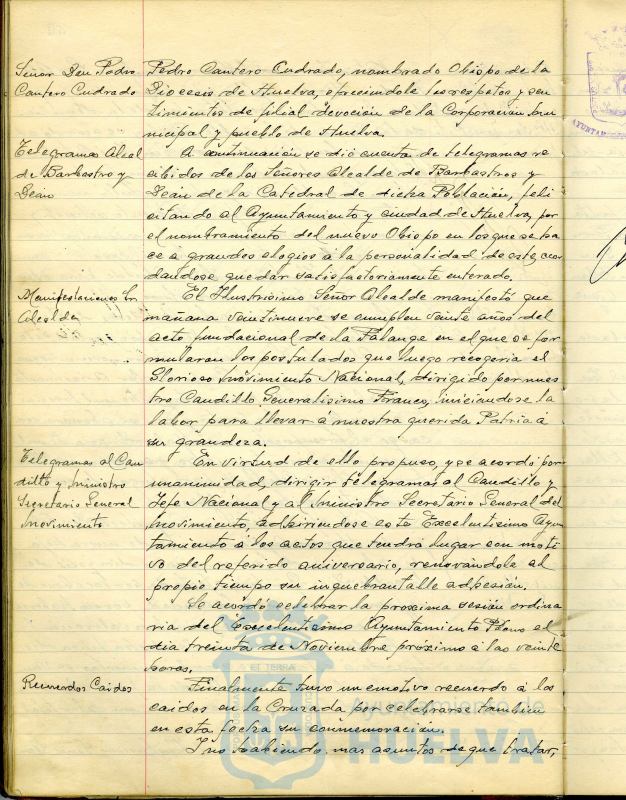 Señor Don Pedro
Cantero Cuadrado
Pedro Cantero Cuadrado, nombrado Obispo de la
Diocesis de Huelva, ofreciendole los respetos y sen
timientos de filial devoción de la Corporación Mu
nicipal y pueblo de Huelva.
Telegramas Alcal
de Barbastro y
Dean
A continuación se dió cuenta de telegramas re
cibidos de los Señores Alcalde de Barbastros y
Dean de la Catedral de dicha Población, feli
citando al Ayuntamiento y ciudad de Huelva, por
el nombramiento del nuevo Obispo en los que se ha
ce a grandes elogios á la personalidad de este, acor
dandose quedar satisfactoriamente enterado.
Manifestaciones Sr.
Alcalde
El Ilustrisimo Señor Alcalde manifestó que
mañana veintinueve se cumplen veinte años del
acto fundacional de la Falange en el que se for
mularan los postulados que luego recogeria el
Glorioso Movimiento Nacional, dirigido por nues
tro Caudillo Generalisimo Franco, iniciandose la
labor para llevar á nuestra querida Patria á
su grandeza.
Telegramas al Cau
dillo y Ministro
Secretario General
Movimiento
En virtud de ello propuso, y se acordó por
unanimidad, dirigir telegramas al Caudillo y
Jefe Nacional y al Ministro Secretario General del
Movimiento, adhiriendose este Excelentisimo Ayun
tamiento á los actos que tendrá lugar con moti
vo del referido aniversario, renovándole al
propio tiempo su inquebrantable adhesión.
Se acordó celebrar la proxima sesión ordina
ria del Excelentisimo Ayuntamiento Pleno el
dia treinta de Noviembre próximo á las veinte
horas.
Recuerdos Caidos
Finalmente tuvo un emotivo recuerdo á los
caidos en la Cruzada por celebrarse tambien
en esta fecha su conmemoración.
Y no habiendo mas asuntos de que tratar,
Ayuntamiento de
HUELVA